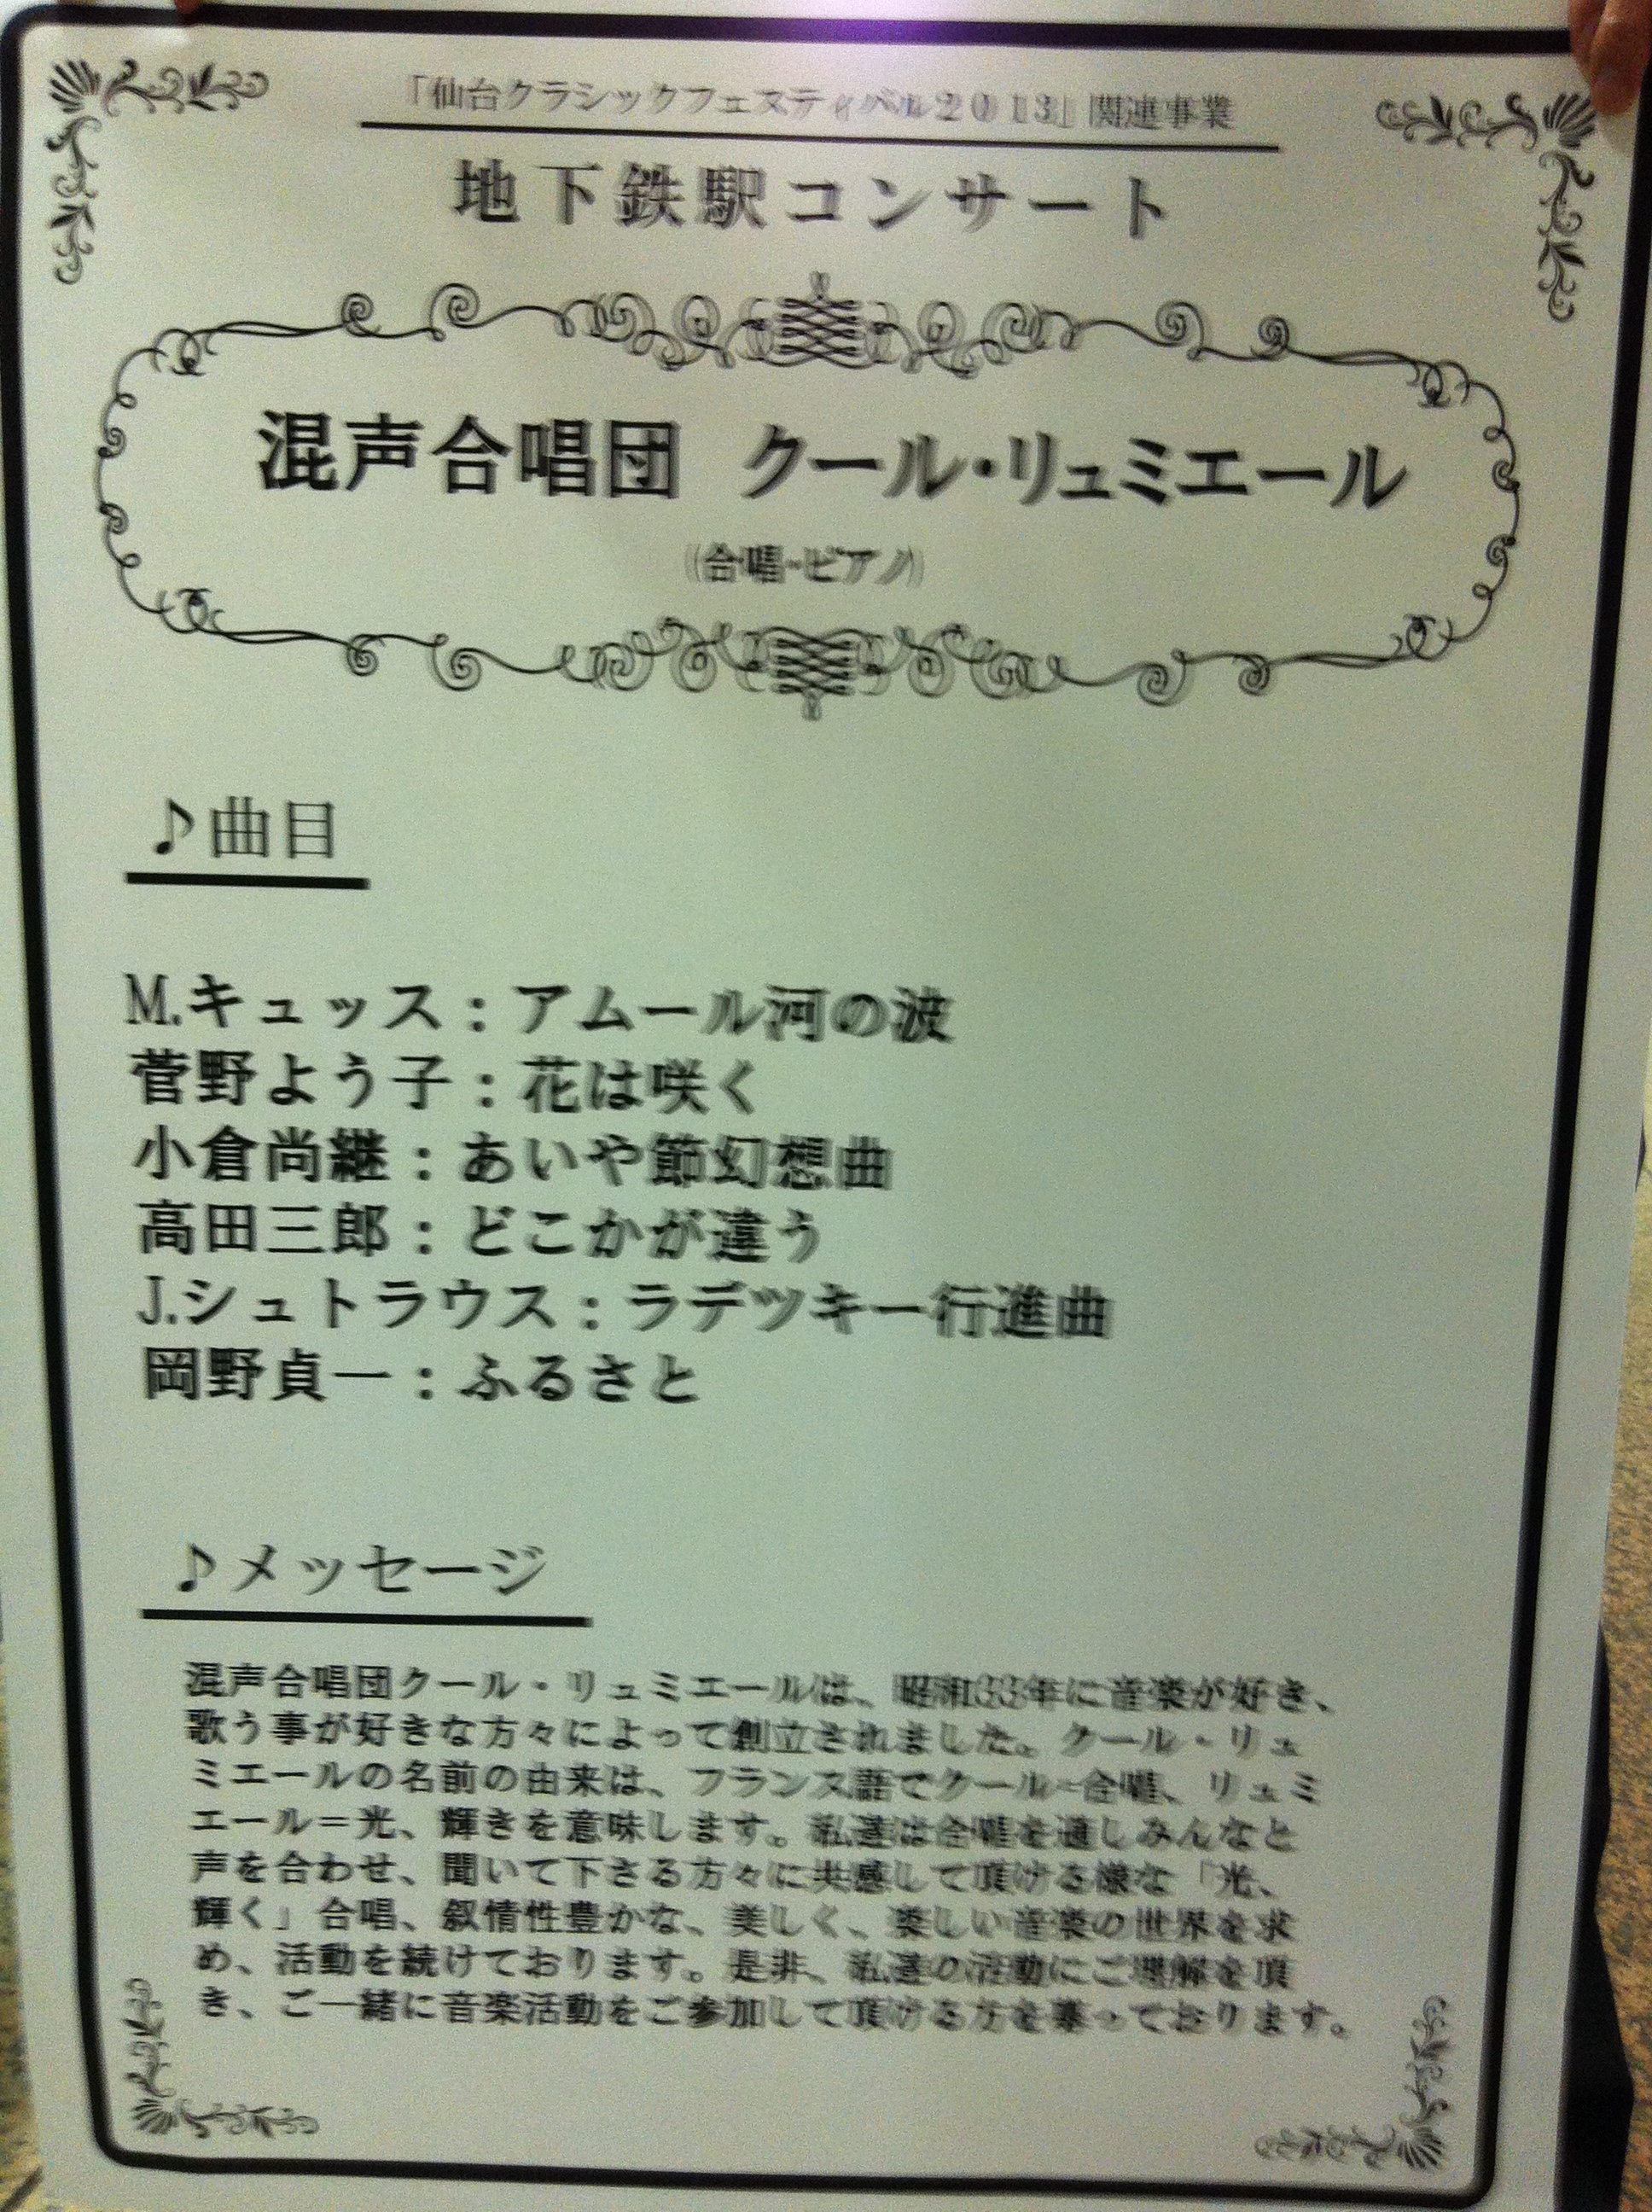 「仙台クラシックフェスティバル２０１３」関連事業
地下鉄駅コンサート
混声合唱団 クール・リュミエール
(合唱・ピアノ)
♪曲目
M.キュッス：アムール河の波
菅野よう子：花は咲く
小倉尚継：あいや節幻想曲
高田三郎：どこかが違う
J.シュトラウス：ラデツキー行進曲
岡野貞一：ふるさと
♪メッセージ
混声合唱団クール・リュミエールは、昭和33年に音楽が好き、
歌う事が好きな方々によって創立されました。クール・リュ
ミエールの名前の由来は、フランス語でクール=合唱、リュミ
エール＝光、輝きを意味します。私達は合唱を通しみんなと
声を合わせ、聞いて下さる方々に共感して頂ける様な「光、
輝く」合唱、叙情性豊かな、美しく、楽しい音楽の世界を求
め、活動を続けております。是非、私達の活動にご理解を頂
き、ご一緒に音楽活動をご参加して頂ける方を募っております。